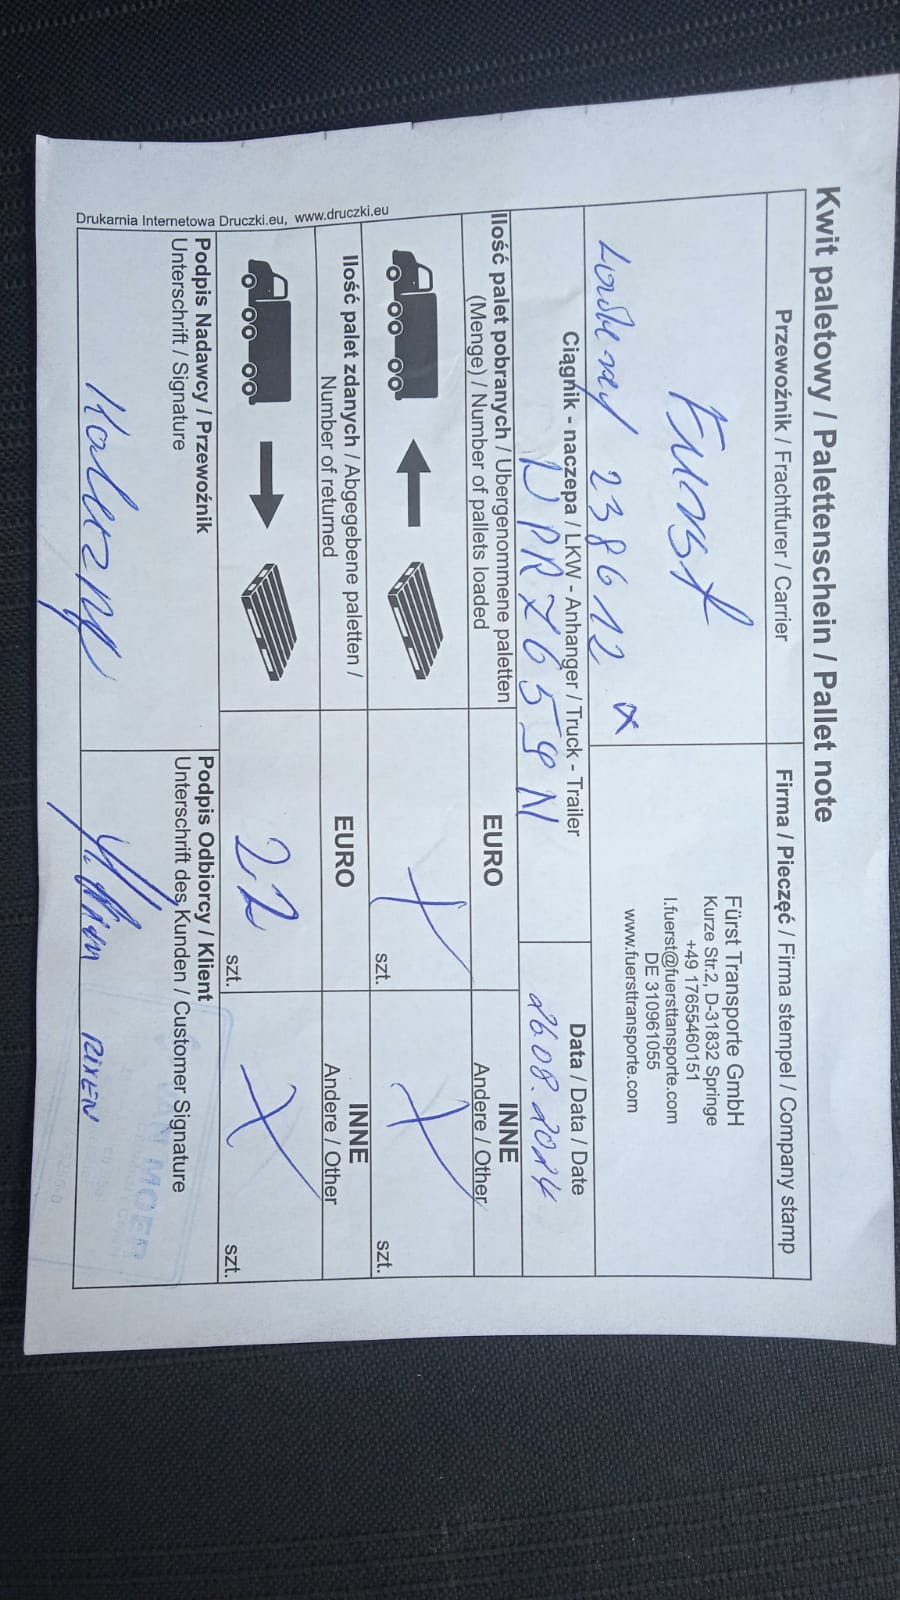 Kwit paletowy / Palettenschein / Pallet note
Przewoźnik / Frachtfurer / Carrier
Fürst
238612 x
Firma / Pieczęć / Firma stempel / Company stamp
Fürst Transporte GmbH
Kurze Str.2, D-31832 Springe
+49 17655460151
l.fuerst@fuersttansporte.com
DE 310961055
www.fuersttransporte.com
Ciągnik - naczepa / LKW - Anhanger / Truck - Trailer
Data / Data / Date
26.08.2024
Ilość palet pobranych / Ubergenommene paletten
(Menge) / Number of pallets loaded
EURO
INNE
Andere / Other
szt.
szt.
Ilość palet zdanych / Abgegebene paletten /
Number of returned
EURO
INNE
Andere / Other
22
szt.
X
szt.
Podpis Nadawcy / Przewoźnik
Unterschrift / Signature
Podpis Odbiorcy / Klient
Unterschrift des Kunden / Customer Signature
RIXEN
Drukarnia Internetowa Druczki.eu, www.druczki.eu